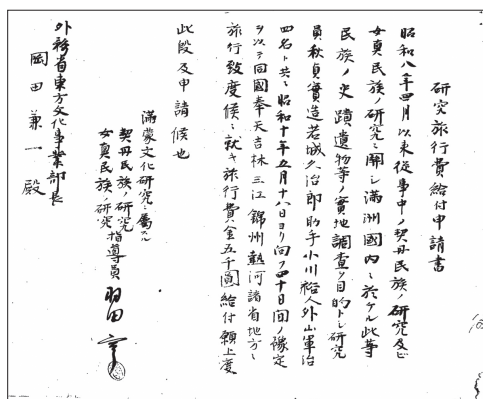 研究旅行費給付申請書
昭和八年四月以来従事中ノ契丹民族ノ研究及ビ
女真民族ノ研究ニ関シ満洲國内ニ於ケル此等
民族ノ史蹟遺物等ノ實地調査ヲ目的トシ研究
員秋貞實造若城久治郎助手小川裕人外山軍治
四名ト共ニ昭和十年五月十八日ヨリ向フ四十日間ノ豫定
ヲ以テ同國奉天吉林三江錦州熱河諸省地方ニ
旅行致度候ニ就キ旅行費金五千圓給付願上度
此段及申請候也
満蒙文化研究ニ属スル
契丹民族ノ研究
女真民族ノ研究
指導員 羽田亨
外務省東方文化事業部長
岡田兼一殿